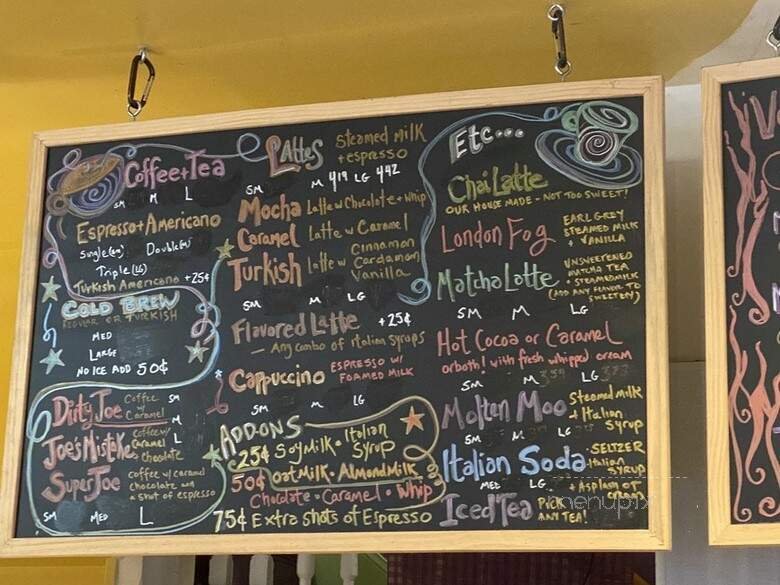 Coffee+Tea
SM M L
Espresso+Americano
Single(SM) Double(M)
Triple(LG)
Turkish Americano +25¢
COLD BREW
REGULAR OR TURKISH
MED
LARGE
NO ICE ADD 50¢
Dirty Joe Coffee w/ Caramel
SM
M
Joe's Mistake coffee w/ Caramel, chocolate
L
SuperJoe coffee w/ caramel
chocolate w/
a shot of espresso
SM MED L
LATTES Steamed milk
+ espresso
SM M 419 LG 442
Mocha Latte w/ Chocolate + Whip
Caramel Latte w/ Caramel
Turkish Latte w/ Cinnamon
Cardamon
Vanilla
SM M LG
Flavored Latte +25¢
— Any combo of Italian Syrups
Cappuccino ESPRESSO W/
FOAMED MILK
SM M LG
ADD-ONS
25¢ Soy Milk • Italian
Syrup
50¢ oat Milk • Almond Milk
Chocolate • Caramel • Whip
75¢ Extra shots of Espresso
Etc...
Chai Latte
OUR HOUSE MADE - NOT TOO SWEET!
London Fog EARL GREY
STEAMED MILK
+ VANILLA
Matcha Latte UNSWEETENED
MATCHA TEA
+ STEAMED MILK
(ADD ANY FLAVOR TO
SWEETEN)
SM M LG
Hot Cocoa or Caramel
or both! with fresh whipped cream
SM M LG
Molten Moo Steamed milk
+ Italian
Syrup
SM M LG
Italian Soda SELTZER
Italian
SYRUP
MED LG + A splash of
cream
Iced Tea PICK
ANY TEA!
menupix